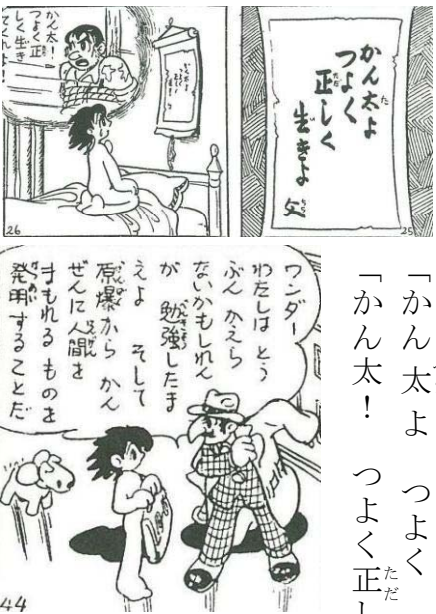 かん太よ
つよく
正しく
生きよ
父
25
かん太!
つよく正
しく生き
てくれよ!
かん太よ
つよく
正しく
生きよ
26
ワンダー
わたしは とう
ぶん かえら
ないかもしれん
が 勉強したま
えよ そして
原爆から かん
ぜんに人間を
まもれる ものを
発明することだ
44
「かん太よ つよく
「かん太! つよく正し